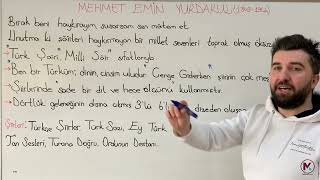 MEHMET EMİN YURDAKUL
Bırak beni haykırayım, susarsam sen matem et.
Unutma ki şairleri haykırmayan bir millet sevenleri toprak olmuş öksüz
"Türk Şairi" "Milli Şair" sıfatlarıyla
"Ben bir Türküm; dinim, cinsim uludur" Cenge Giderken şiirinin çok meş
Şiirlerinde sade bir dil ve hece ölçümü kullanmıştır.
Dörtlük geleneğinin dışına çıkmış 3'lü 6'lı dizeden oluşan
Şiirleri: Türkçe Şiirler, Türk Sazı, Ey Türk
Tan Sesleri, Turana Doğru, Ordunun Destanı